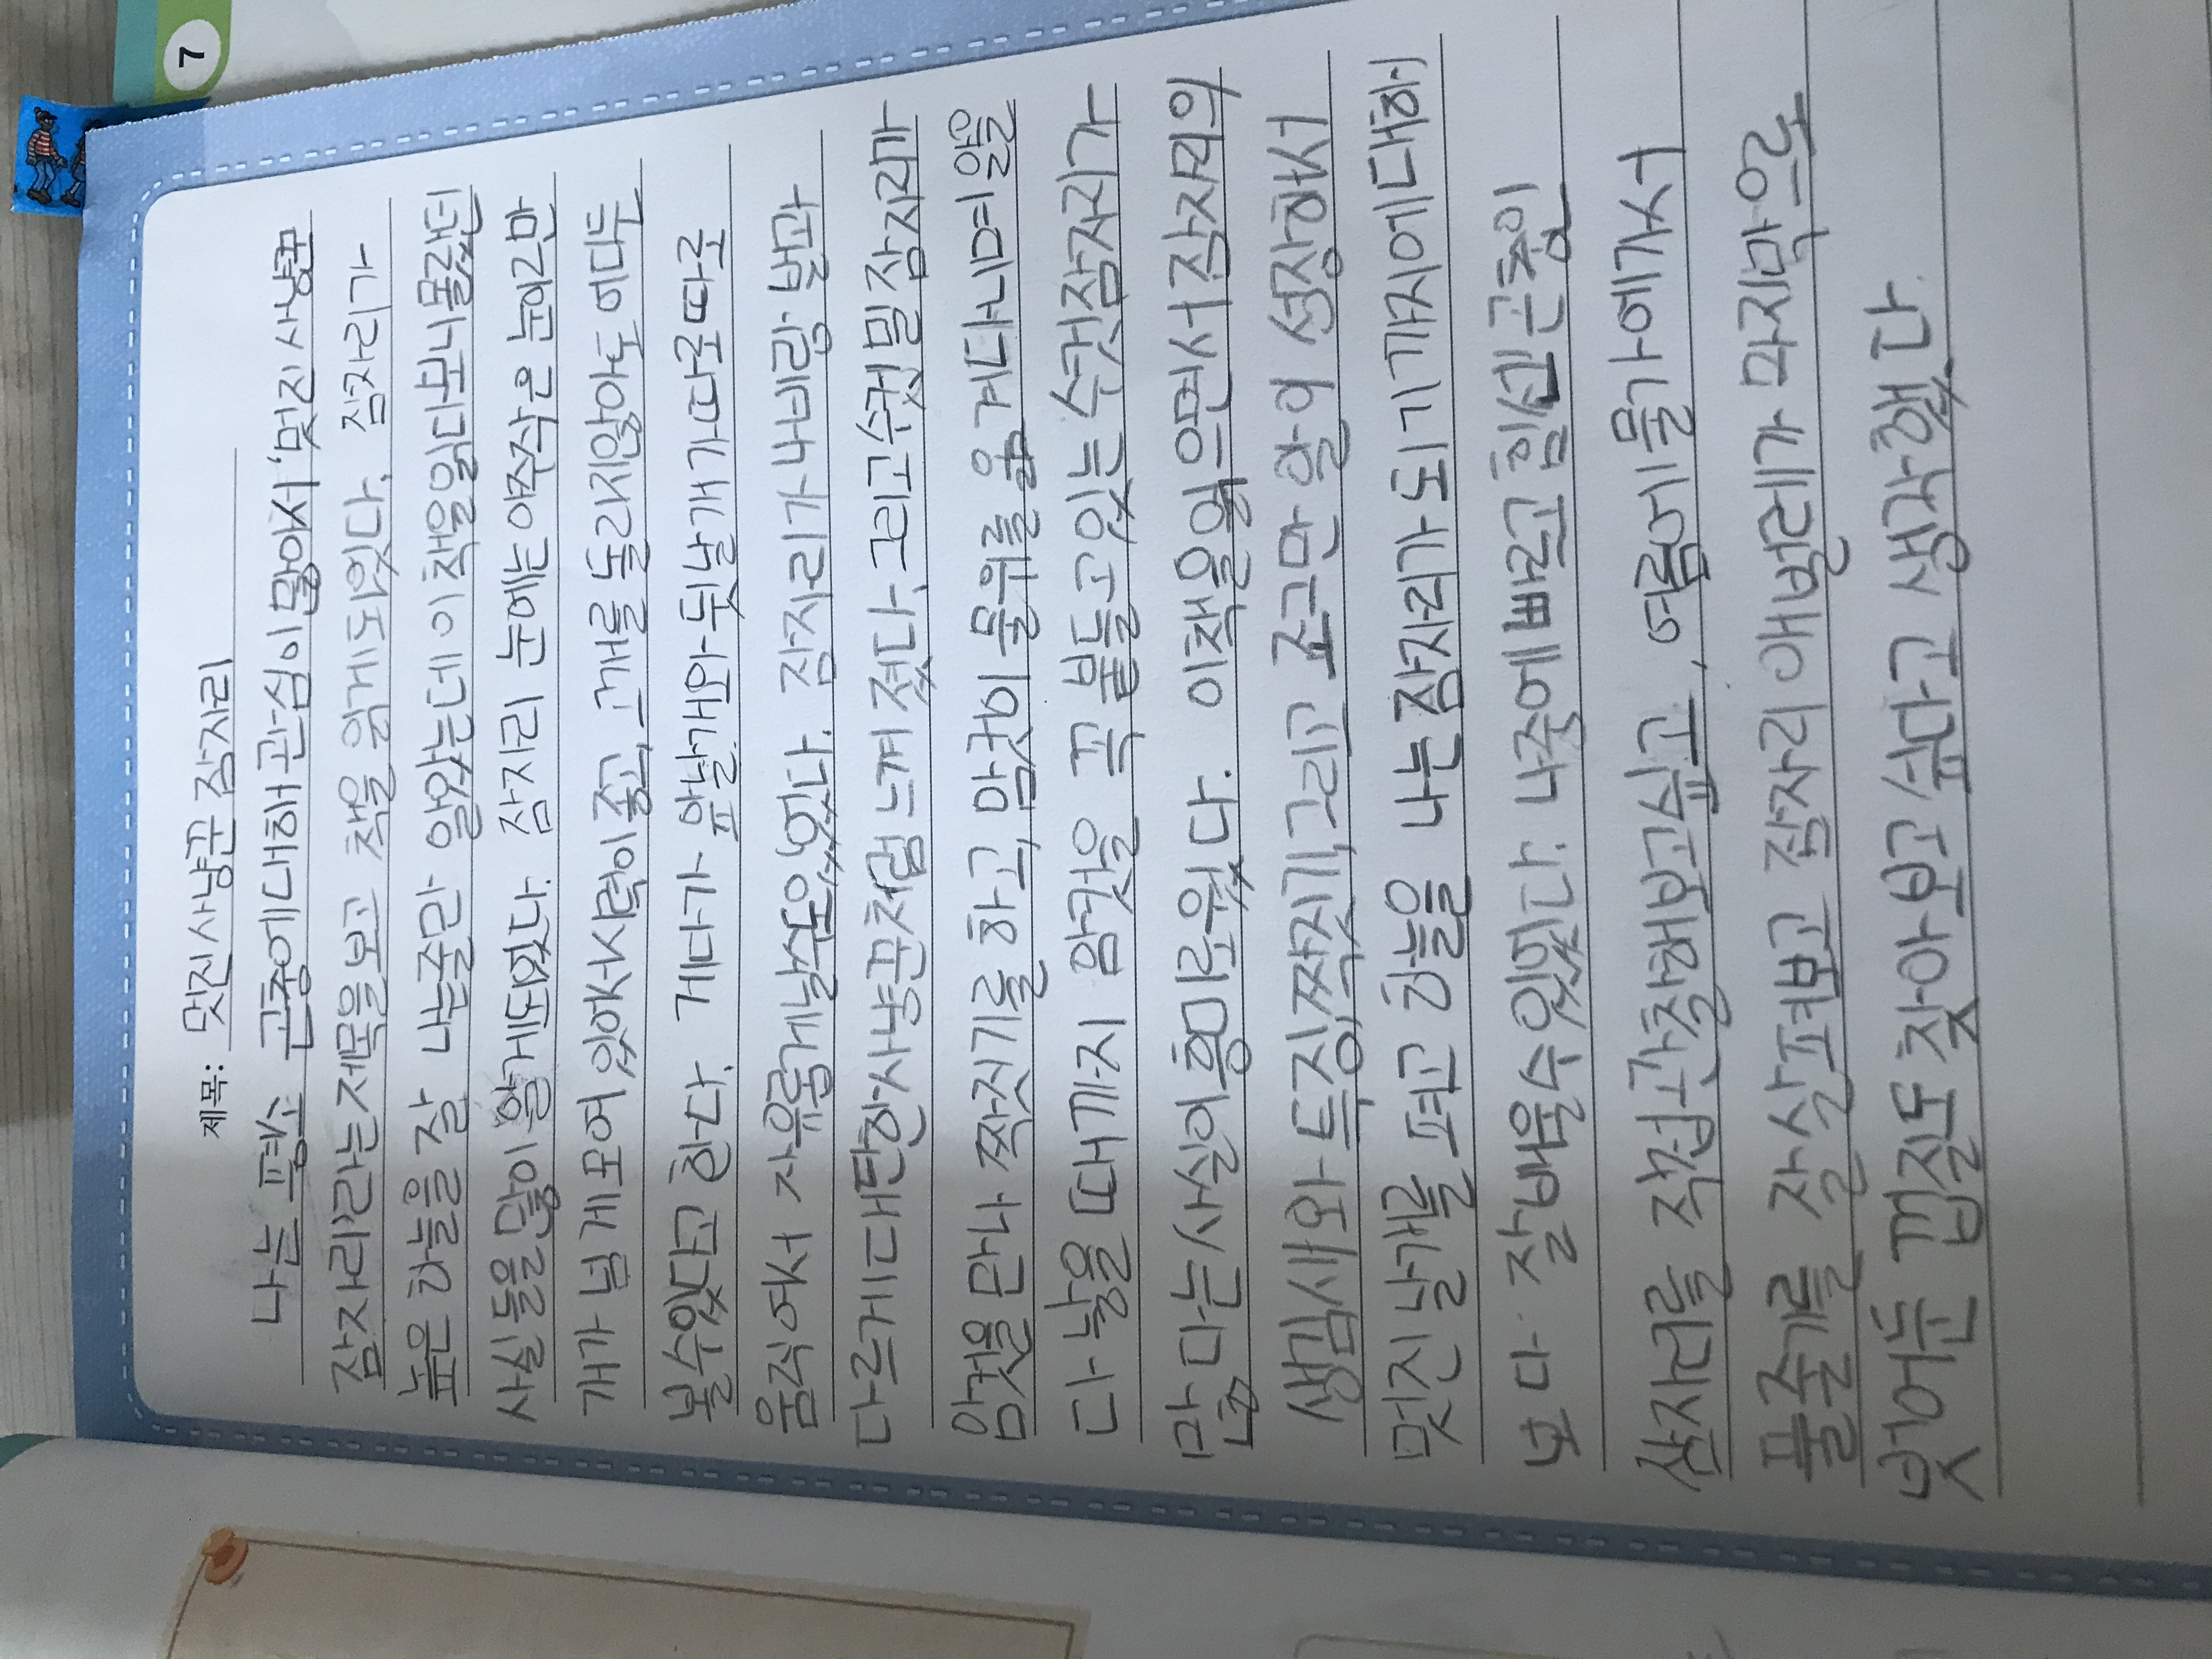 7
제목: 멋진 사냥꾼 잠자리
나는 평소 곤충에 대해 관심이 많아서 '멋진 사냥꾼
잠자리'라는 제목을 보고 책을 읽게 되었다. 잠자리가
높은 하늘을 잘 나는줄만 알았는데 이 책을 읽다보니 몰랐던
사실들을 많이 알게되었다. 잠자리 눈에는 아주작은 눈이 2만
개가 넘게 모여 있어서 시력이 좋고, 고개를 돌리지않아도 어디든
볼수있다고 한다. 게다가 앞날개와 뒷날개가 따로따로
움직여서 자유롭게 날수도있었다. 잠자리가 나비랑 벌과
다르게 대단한 사냥꾼처럼 느껴졌다. 그리고 수컷 밀잠자리가
암컷을 만나 짝짓기를 하고, 암컷이 물위를 옮겨다니며 알을
다 낳을 때까지 암컷을 꼭 붙들고있는 수컷잠자리가
많다는 사실이 흥미로웠다. 이책을 읽으면서 잠자리의
생김새와 특징, 짝짓기, 그리고 조그만 알이 성장해서
멋진 날개를 펴고 하늘을 나는 잠자리가 되기까지에 대해
보다 잘 배울수 있었다. 나중에 빠르고 힘센 곤충인
잠자리를 직접 관찰해보고싶고, 여름에 물가에가서
풀줄기를 잘 살펴보고 잠자리 애벌레가 마지막으로
벗어둔 껍질도 찾아보고 싶다고 생각했다.